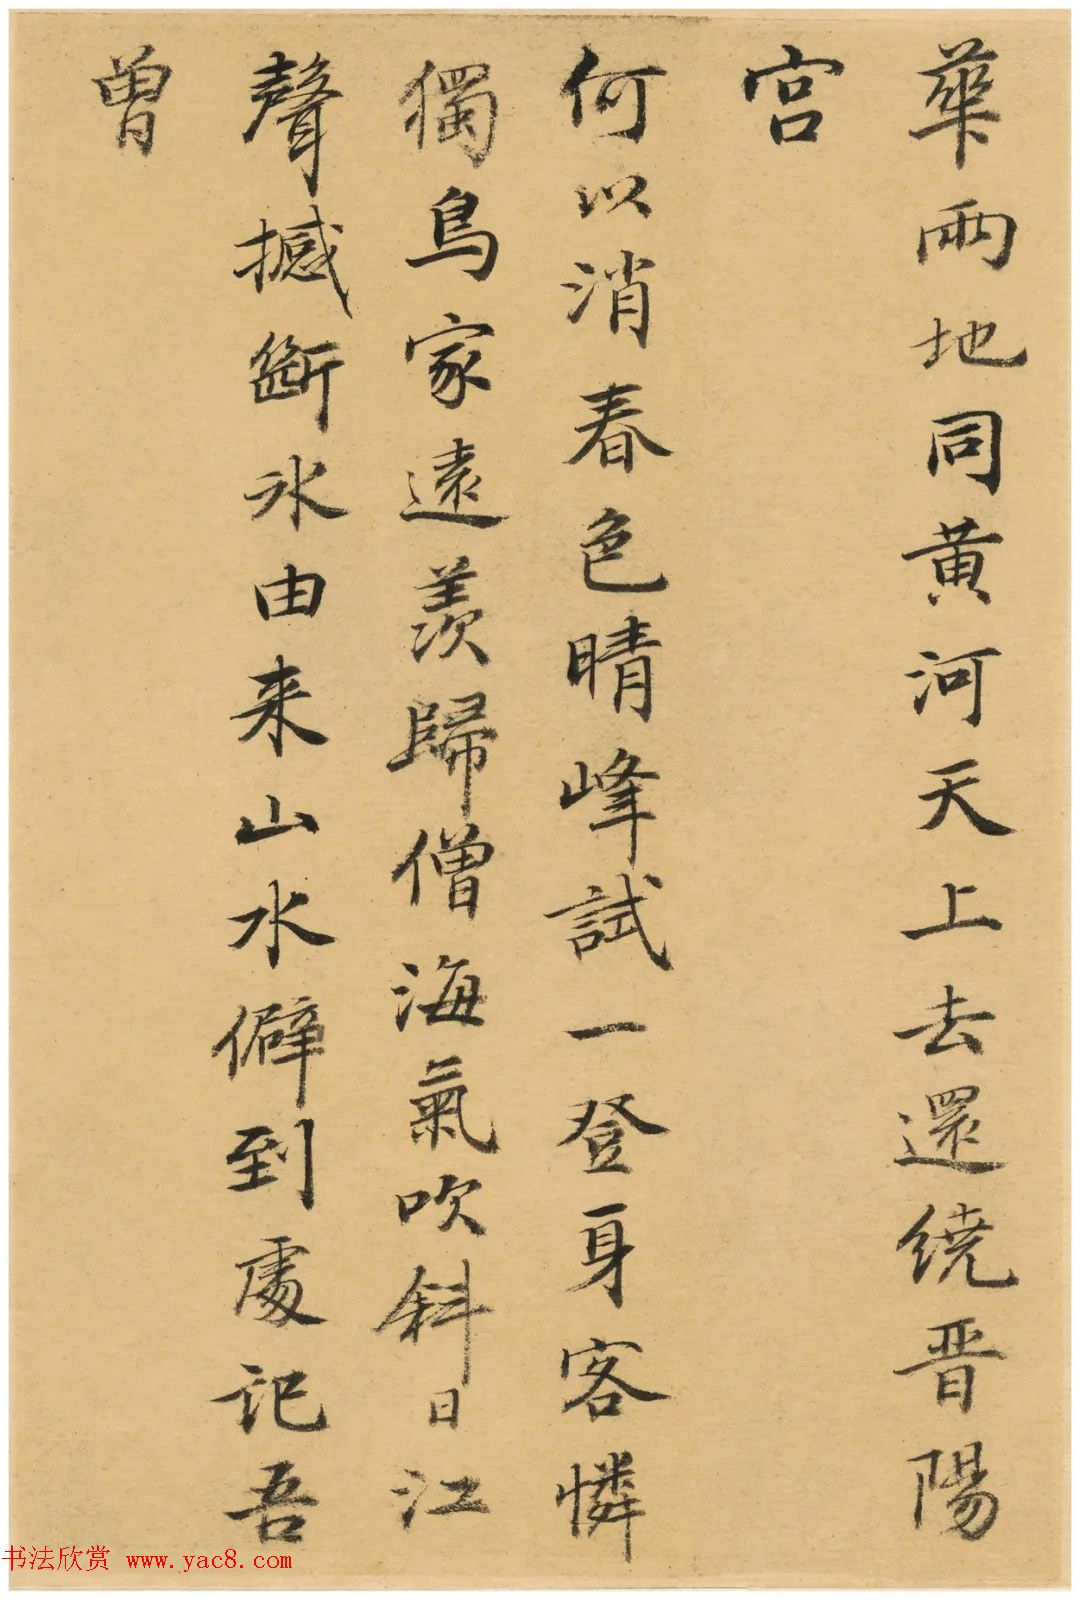 華兩地同黄河天上去還繞晋陽
宫
何以消春色晴峰試一登身客憐
獨鳥家遠羨歸僧海氣吹斜日江
聲撼斷冰由来山水僻到處記吾
曾
书法欣赏 www.yac8.com